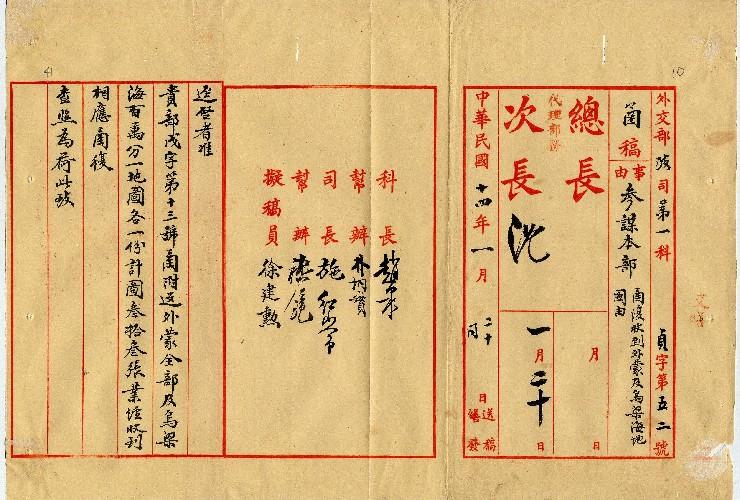 10
外交部 司第一科 貞字第五二號
函稿
事由
參謀本部
函復收到外蒙及烏梁海地
圖由
總長
代理部務
次長 沈
月 日
一月二十日
中華民國十四年一月二十日 送稿
日繕發
科長
幫辦
司長 施紹常
幫辦
擬稿員 徐建勲
41
逕啓者准
貴部戌字第十三號函附送外蒙全部及烏梁
海百萬分一地圖各一份計圖叁拾叁張業經收到
相應函復
查照為荷此致